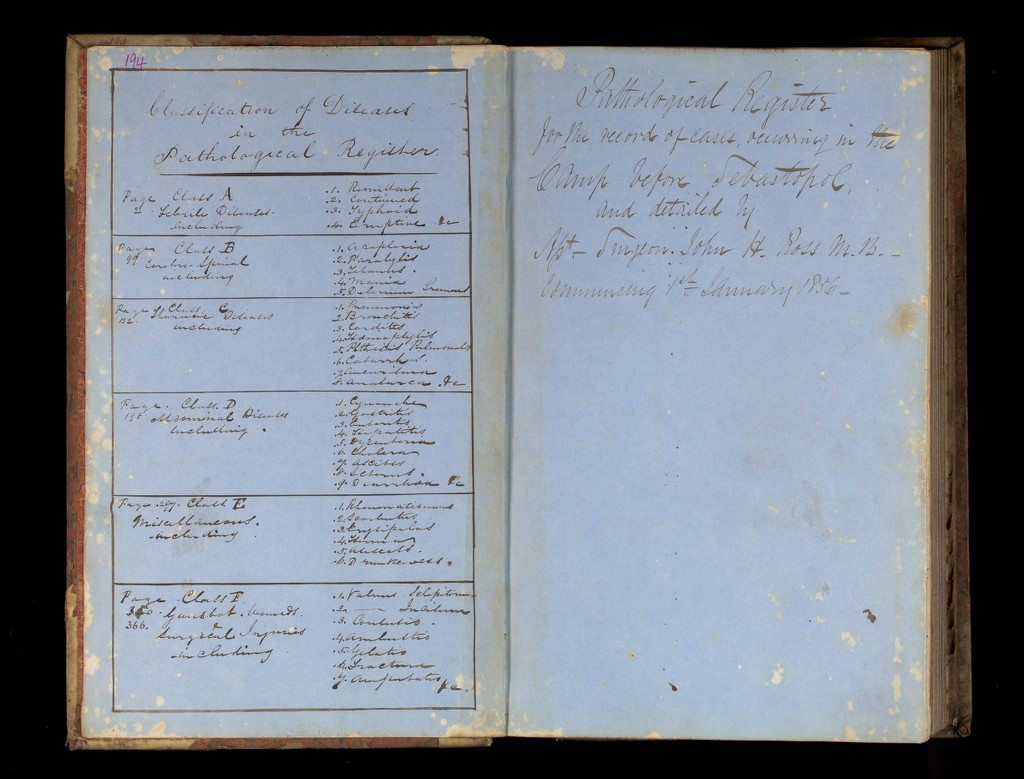 194
Classification of Diseases
in the
Pathological Register.
Page Class A
Febrile Diseases.
including
.1. Remittent
.2. Continued
.3. Typhoid
.4. Eruptive &c
Page Class B
Cerebro-Spinal
including
.1. Apoplexia
.2. Paralysis
.3. Tetanus.
.4. Mania
.5. Delirium Tremens
Page Class C
132. Thoracic Diseases
including
.1. Pneumonia
.2. Bronchitis
.3. Carditis
.4. Hæmoptysis
.5. Phthisis Pulmonalis
.6. Catarrhus.
.7. Aneurisma
.8. Anasarca &c
Page. Class. D
Abdominal Diseases
including.
.1. Cynanche
.2. Gastritis
.3. Enteritis
.4. Hepatitis
.5. Dysenteria
.6. Cholera
.7. Ascites
.8. Icterus.
.9. Diarrhœa &c
Page 297. Class E
Miscellaneous.
including
.1. Rheumatismus
.2. Scorbutus
.3. Erysipelas
.4. Hernia
.5. Abscess.
.6. Drunkenness.
Page Class F
350 Gunshot Wounds.
366. & Surgical Injuries
including
.1. Vulnus Sclopitorum
.2. — Incisum
.3. Contusio.
.4. Ambustio
.5. Gelatio
.6. Fractura
.7. Amputatio &c.
Pathological Register
for the record of cases, occurring in the
Camp before Sebastopol,
and detailed by
Asst- Surgeon. John H. Ross M.B.-
Commencing 1st January 1856-